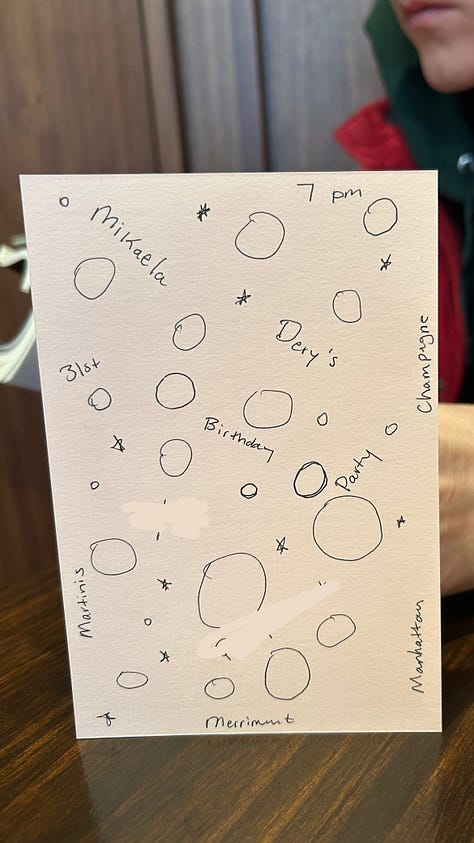 7 pm
Mikaela
Dery's
31st
Birthday
Party
Champagne
Martinis
Manhattan
Merriment